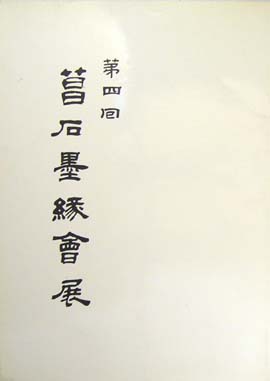 第四回
菖石墨緣會展